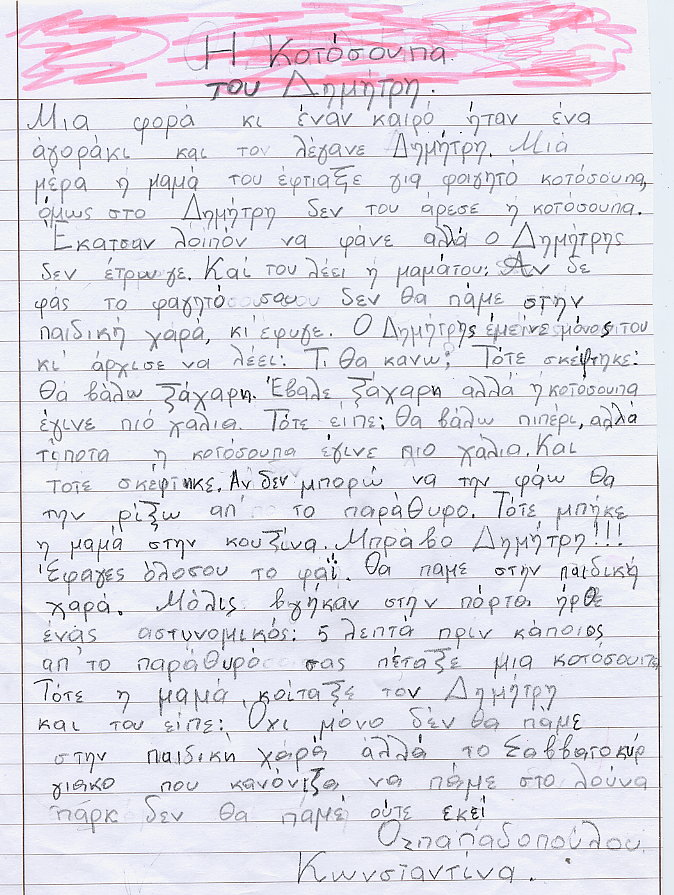 Η Κοτόσουπα
του Δημήτρη.
Μια φορά κι έναν καιρό ήταν ένα
αγοράκι και τον λέγανε Δημήτρη. Μιά
μέρα η μαμά του έφτιαξε για φαγητό κοτόσουπα,
όμως στο Δημήτρη δεν του άρεσε η κοτόσουπα.
Έκατσαν λοιπόν να φάνε αλλά ο Δημήτρης
δεν έτρωγε. Και του λέει η μαμάτου: Αν δε
φάς το φαγητό σου δεν θα πάμε στην
παιδική χαρά, κι έφυγε. Ο Δημήτρης έμεινε μόνος του
κι άρχισε να λέει: Τι θα κανω; Τότε σκέφτηκε:
Θα βάλω ζάχαρη. Έβαλε ζάχαρη αλλά η κοτόσουπα
έγινε πιό χάλια. Τότε είπε: Θα βάλω πιπέρι, αλλά
τίποτα η κοτόσουπα έγινε πιο χάλια. Και
τοτε σκέφτηκε. Αν δεν μπορώ να την φάω θα
την ρίξω απ' το παράθυρο. Τότε μπήκε
η μαμά στην κουζίνα. Μπράβο Δημήτρη!!!
Έφαγες όλοσου το φαΐ. Θα παμε στην παιδική
χαρά. Μόλις βγήκαν στην πόρτα ήρθε
ένας αστυνομικός: 5 λεπτά πριν κάποιος
απ'το παράθυρό σας πέταξε μια κοτόσουπα
Τότε η μαμά κοίταξε τον Δημήτρη
και του είπε: Όχι μόνο δέν θα πάμε
στην παιδική χαρά άλλά το Σαββατοκύρ
γιακο που κανόνιζα να πάμε στο λούνα
πάρκ δεν θα πάμε ούτε εκεί
Οζπαπαδοπούλου
Κωνσταντίνα.